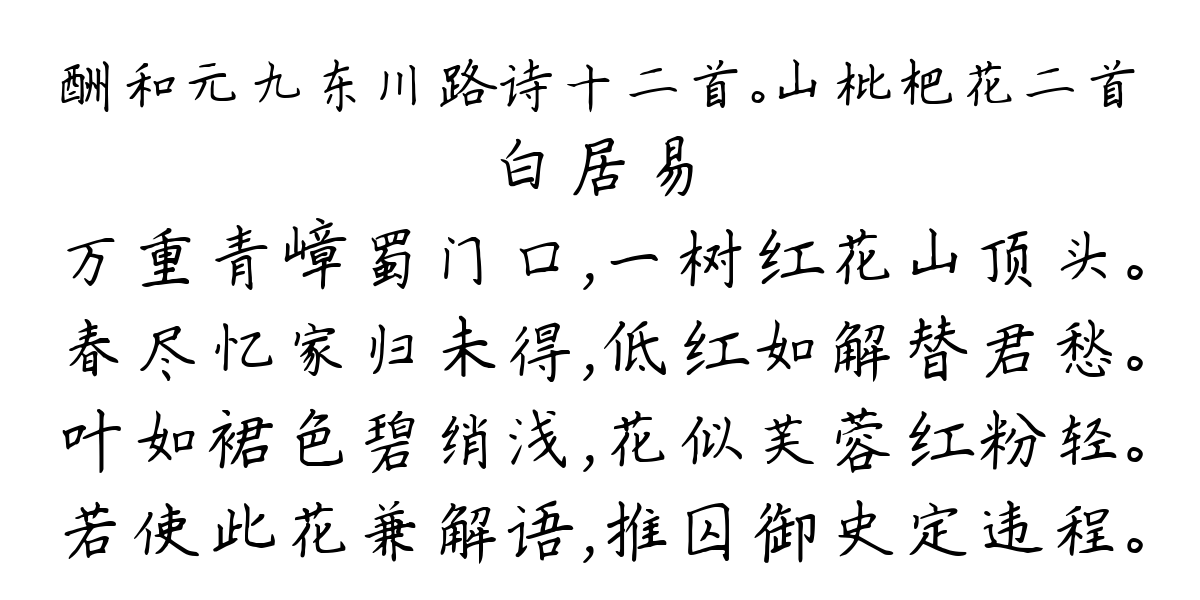 酬和元九东川路诗十二首。山枇杷花二首
白居易
万重青嶂蜀门口,一树红花山顶头。
春尽忆家归未得,低红如解替君愁。
叶如裙色碧绡浅,花似芙蓉红粉轻。
若使此花兼解语,推囚御史定违程。